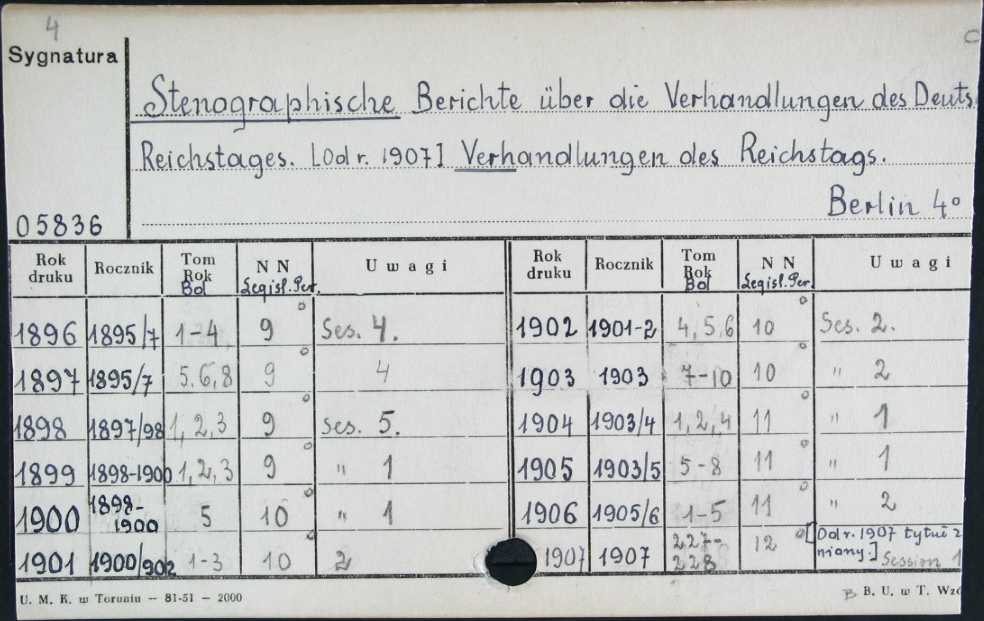 4
Sygnatura
Stenographische Berichte über die Verhandlungen des Deuts
Reichstages. [Od r. 1907] Verhandlungen des Reichstags.
05836
Berlin 4°
Rok druku Rocznik Tom Rok Bd N N Legisl. Per. Uwagi Rok druku Rocznik Tom Rok Bd N N Legisl. Per. Uwagi
1896 1895/7 1-4 9 Ses. 4. 1902 1901-2 4, 5, 6 10 Ses. 2.
1897 1895/7 5. 6, 8 9 4 1903 1903 7-10 10 " 2
1898 1897/98 1, 2, 3 9 Ses. 5. 1904 1903/4 1, 2, 4 11 " 1
1899 1898-1900 1, 2, 3 9 " 1 1905 1903/5 5-8 11 " 1
1900 1898-1900 5 10 " 1 1906 1905/6 1-5 11 " 2
1901 1900/902 1-3 10 2 1907 1907 227-228 12 [Od r. 1907 tytuł z
niony.] Session 1
U. M. K. w Toruniu — 81-51 — 2000
B B. U. w T. Wzó